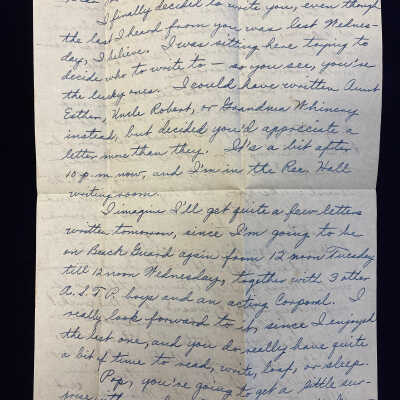 I finally decided to write you, even though
the last I heard from you was last Wednes-
day, I believe. I was sitting here trying to
decide who to write to — so you see, you're
the lucky ones. I could have written Aunt
Esther, Uncle Robert, or Grandma Whinery
instead, but decided you'd appreciate a
letter more than they. It's a bit after
10 p.m now, and I'm in the Rec. Hall
writing room.
I imagine I'll get quite a few letters
written tomorrow, since I'm going to be
on Back Guard again from 12 noon Tuesday
till 12 noon Wednesday, together with 3 other
A.S.T.P. boys and an acting Corporal. I
really look forward to it, since I enjoyed
the last one, and you do really have quite
a bit of time to read, write, loaf, or sleep.
Pop, you're going to get a little sur-